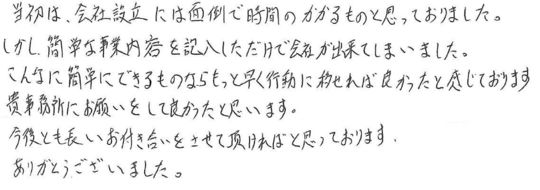 当初は、会社設立には面倒で時間のかかるものと思っておりました。
しかし、簡単な事業内容を記入しただけで会社が出来てしまいました。
こんなに簡単にできるものならもっと早く行動に移せれば良かったと感じております
貴事務所にお願いをして良かったと思います。
今後とも長いお付き合いをさせて頂ければと思っております.
ありがとうございました。